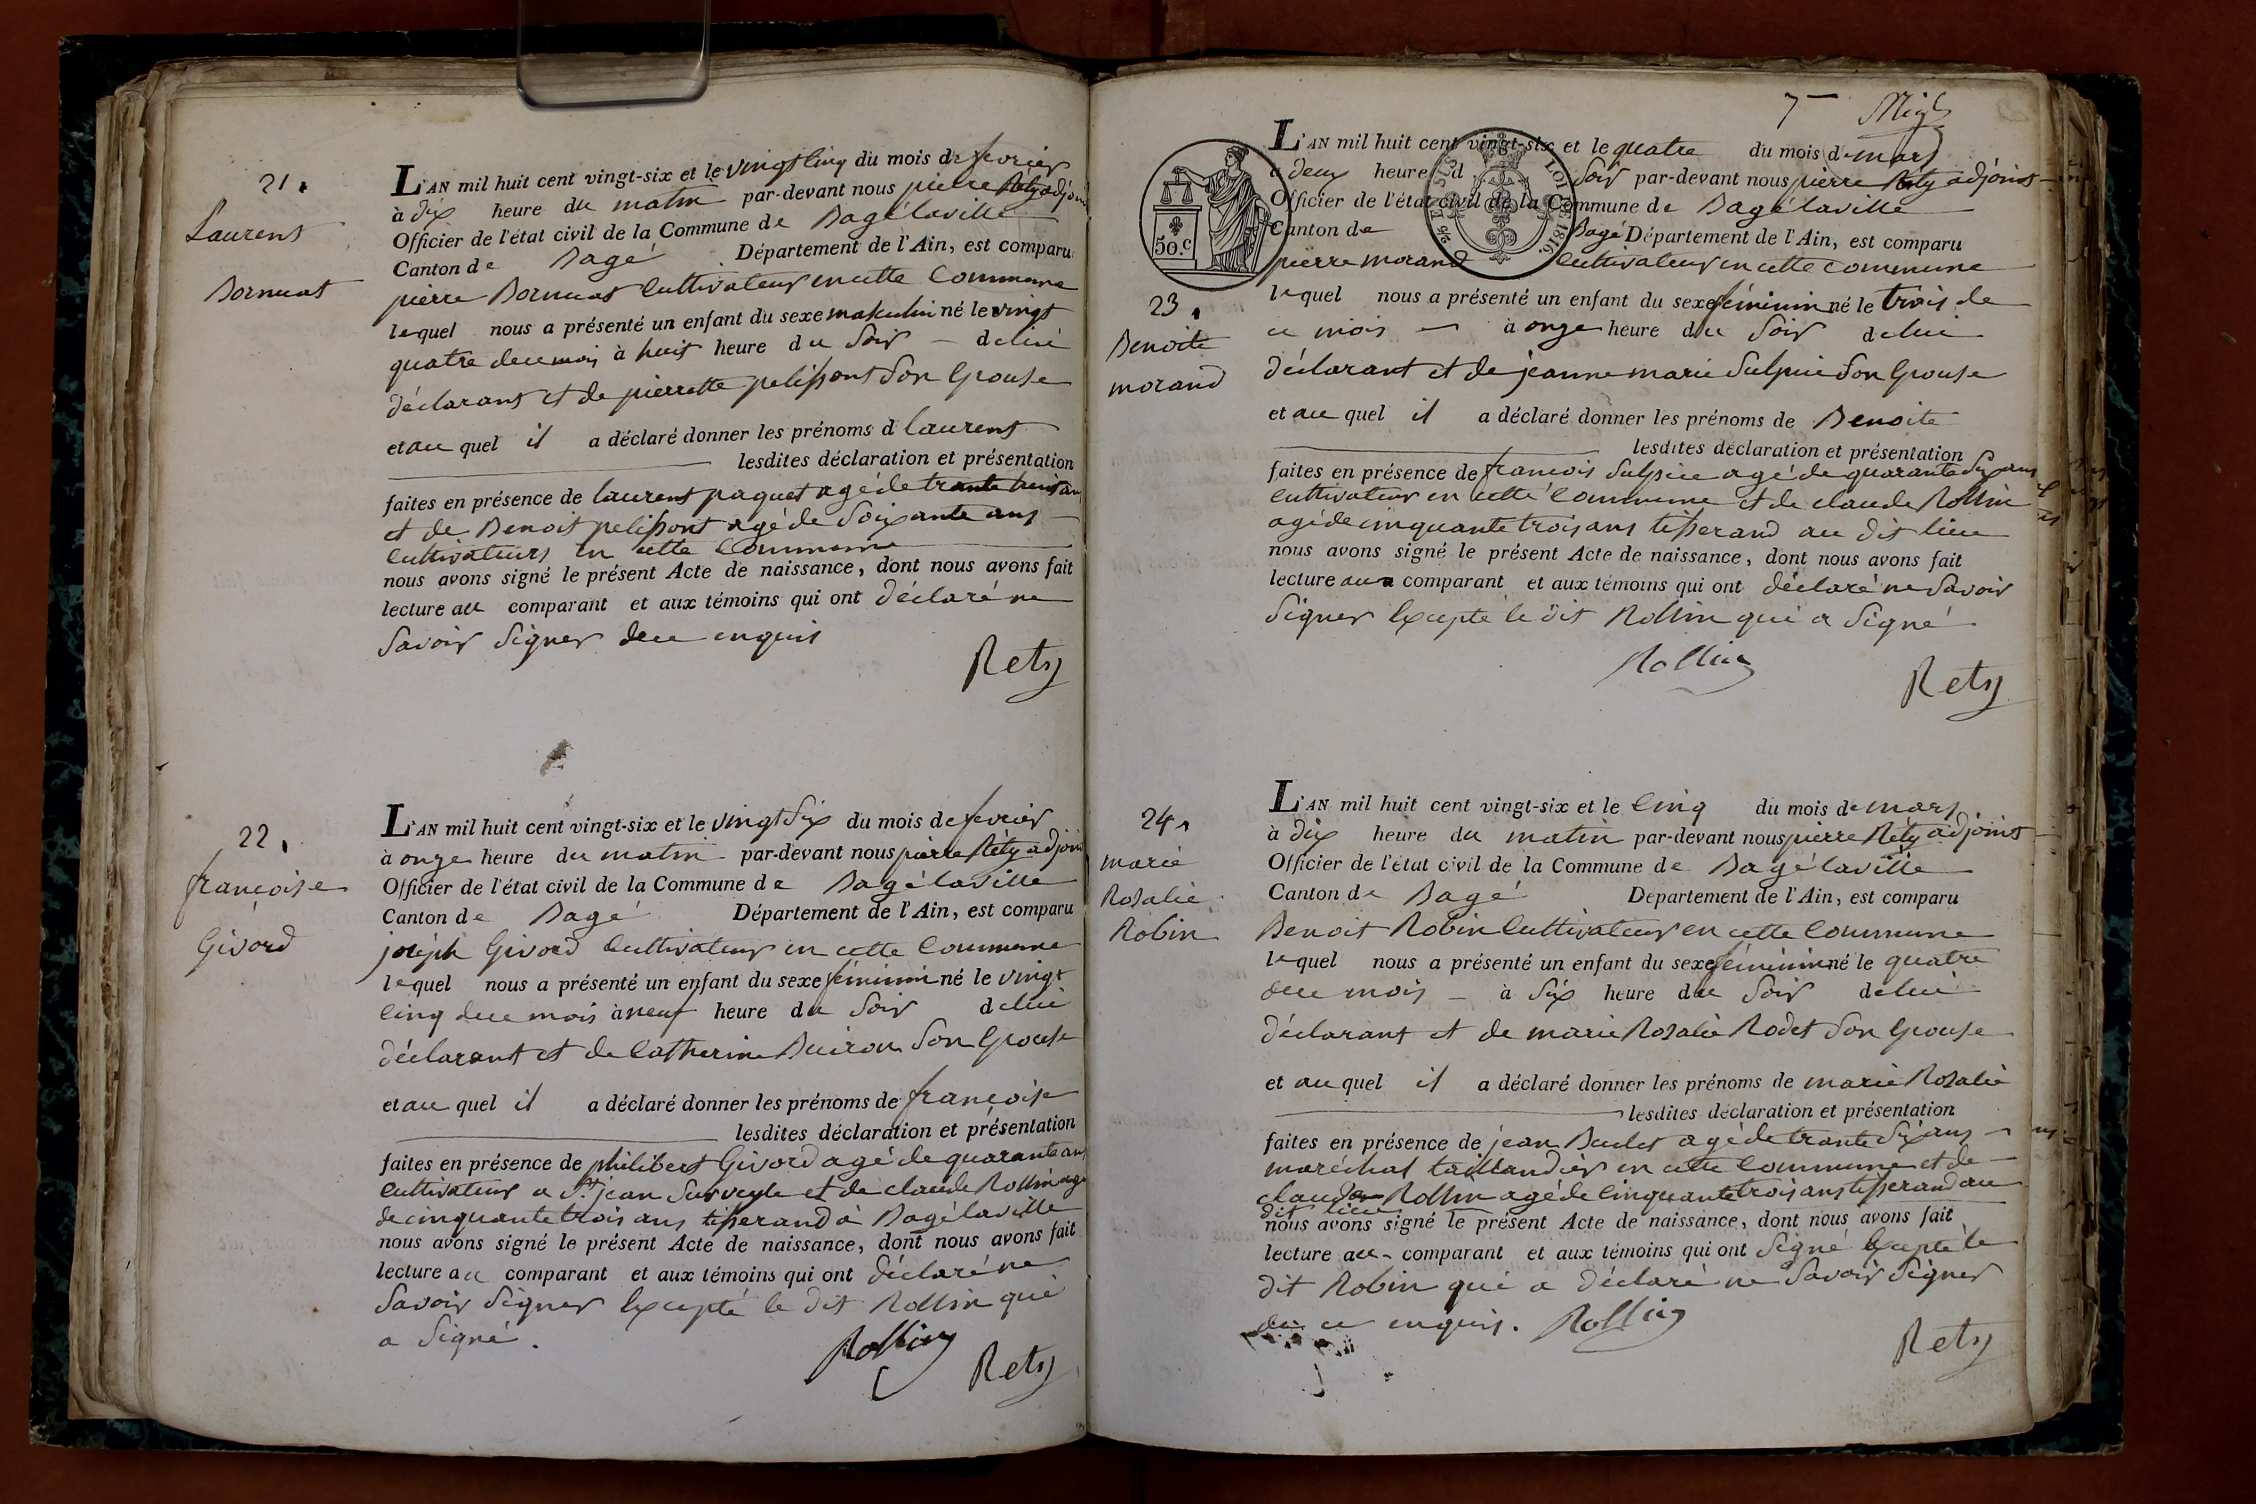 21.
Laurent
Bornuat
L'AN mil huit cent vingt-six et le vingt cinq du mois de fevrier
à dix heure du matin par-devant nous pierre Réty adjoint
Officier de l'état civil de la Commune de Bagé laville
Canton de Bagé Département de l'Ain, est comparu
pierre Bornuat Cultivateur en cette Commune
lequel nous a présenté un enfant du sexe maskulin né le vingt
quatre de ce mois à huit heure du Soir – de lui
déclarant et de pierrette pelissont Son Epouse
et au quel il a déclaré donner les prénoms d laurent
lesdites déclaration et présentation
faites en présence de laurent paquet agé de trante huit ans
et de Benoit pelissont agé de Soixante ans
Cultivateurs en cette Commune
nous avons signé le présent Acte de naissance, dont nous avons fait
lecture au comparant et aux témoins qui ont déclaré ne
Savoir Signer de ce enquis
Rety
22.
françoise
Givord
L'AN mil huit cent vingt-six et le vingt Six du mois de fevrier
à onze heure du matin par-devant nous pierre Réty adjoint
Officier de l'état civil de la Commune de Bagé laville
Canton de Bagé Département de l'Ain, est comparu
joseph Givord Cultivateur en cette Commune
lequel nous a présenté un enfant du sexe féminin né le vingt
Cinq de ce mois à neuf heure du Soir de lui
déclarant et de Catherine Buiron Son Epouse
et au quel il a déclaré donner les prénoms de françoise
lesdites déclaration et présentation
faites en présence de philibert Givord agé de quarante ans
Cultivateur a St jean Surveyle et de claude Rollin agé
de cinquante trois ans tisserand à Bagé laville
nous avons signé le présent Acte de naissance, dont nous avons fait
lecture au comparant et aux témoins qui ont déclaré ne
Savoir Signer Excepté le dit Rollin qui
a Signé.
Rollin
Rety
7
LOI DE 1816.
50.c
23.
Benoite
morand
L'AN mil huit cent vingt-six et le quatre du mois de mars
à deux heure d Soir par-devant nous pierre Réty adjoint
Officier de l'état civil de la Commune de Bagé laville
Canton de Bagé Département de l'Ain, est comparu
pierre morand Cultivateur en cette Commune
lequel nous a présenté un enfant du sexe féminin né le trois de
ce mois – à onze heure du Soir de lui
déclarant et de jeanne marie Sulpice Son Epouse
et au quel il a déclaré donner les prénoms de Benoite
lesdites déclaration et présentation
faites en présence de francois Sulpice agé de quarante Six ans
Cultivateur en cette Commune et de claude Rollin
agé de cinquante trois ans tisserand au dit lieu
nous avons signé le présent Acte de naissance, dont nous avons fait
lecture au comparant et aux témoins qui ont déclaré ne Savoir
Signer Excepté le dit Rollin qui a Signé
Rollin
Rety
24.
marie
Rosalie
Robin
L'AN mil huit cent vingt-six et le Cinq du mois de mars
à dix heure du matin par-devant nous pierre Réty adjoint
Officier de l'état civil de la Commune de Bagé laville
Canton de Bagé Département de l'Ain, est comparu
Benoit Robin Cultivateur en cette Commune
lequel nous a présenté un enfant du sexe féminin né le quatre
de ce mois – à Six heure du Soir de lui
déclarant et de marie Rosalie Rodet Son Epouse
et au quel il a déclaré donner les prénoms de marie Rosalie
lesdites déclaration et présentation
faites en présence de jean Bulet agé de trante Six ans
maréchal taillandier en cette Commune et de
claude Rollin agé de Cinquante trois ans tisserand au
dit lieu
nous avons signé le présent Acte de naissance, dont nous avons fait
lecture au comparant et aux témoins qui ont Signé Excepté le
dit Robin qui a déclaré ne Savoir Signer
de ce enquis. Rollin
Rety